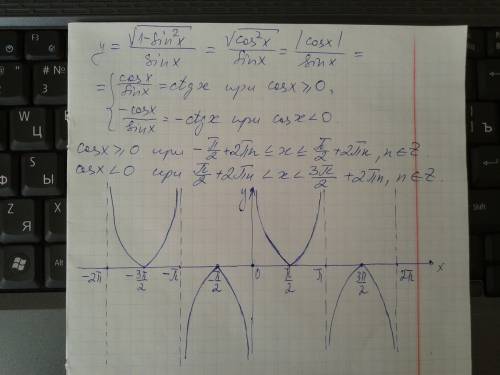 y = √(1-sin²x)/sinx = √(cos²x)/sinx = |cosx|/sinx =
= { cosx/sinx = ctgx при cosx ≥ 0,
{ -cosx/sinx = -ctgx при cosx < 0.
cosx ≥ 0 при -π/2 + 2πn ≤ x ≤ π/2 + 2πn, n ∈ Z
cosx < 0 при π/2 + 2πn < x < 3π/2 + 2πn, n ∈ Z.
y
-2π -3π/2 -π -π/2 0 π/2 π 3π/2 2π x